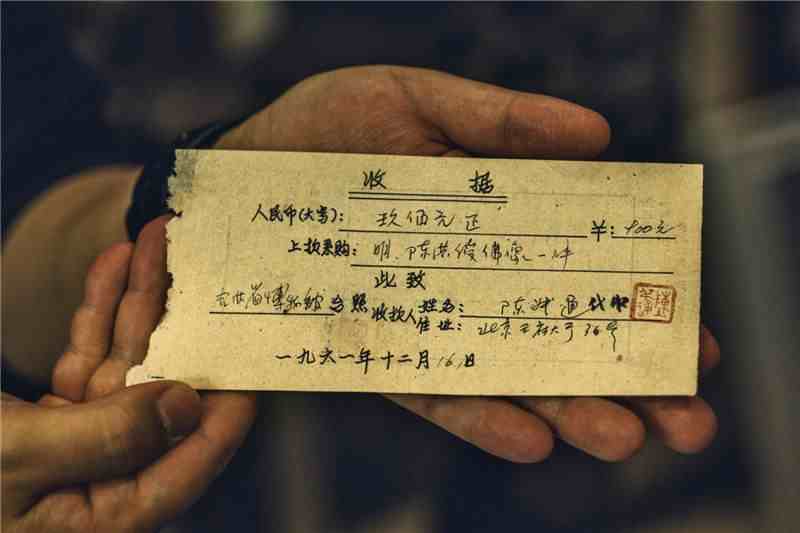 收 据
人民币(大写): 玖佰元正 ¥: 900元
上款系购: 明、陈洪绶佛像一件
此致
省博物馆台照 收款人 姓名: 陈 代
住址: 北京王府大 36号
一九六一年十二月16日